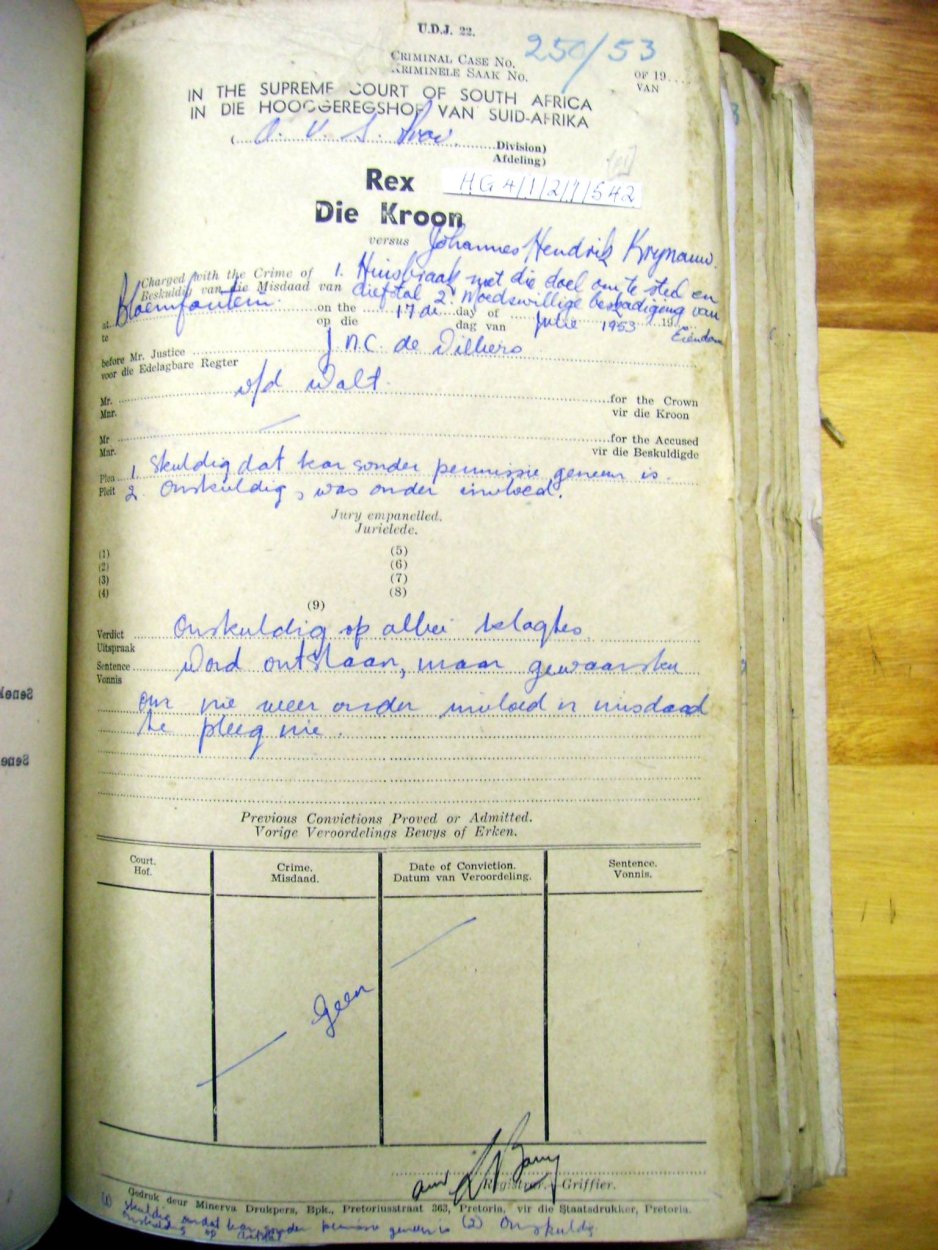 U.D.J. 22.
CRIMINAL CASE No. 250/53 OF 19....
KRIMINELE SAAK No. VAN
IN THE SUPREME COURT OF SOUTH AFRICA
IN DIE HOOGGEREGSHOF VAN SUID-AFRIKA
(O. V. S. Prov. Division)
Afdeling)
Rex HG4/1/2/1/542
Die Kroon
versus Johannes Hendrik Krynauw.
Charged with the Crime of 1. Huisbraak met die doel om te steel en
Beskuldig van die Misdaad van diefstal 2. Moedswillige beskadiging van
Eiendom
at Bloemfontein. on the 17de day of Julie 1953 19
te op die dag van
before Mr. Justice J.N.C. de Villiers
voor die Edelagbare Regter
Mr. v/d Walt. for the Crown
Mnr. vir die Kroon
Mr — for the Accused
Mnr. vir die Beskuldigde
Plea 1. Skuldig dat kar sonder permissie geneem is.
Pleit 2. Onskuldig, was onder invloed.
Jury empanelled.
Jurielede.
(1) (5)
(2) (6)
(3) (7)
(4) (8)
(9)
Verdict Onskuldig op albei klagtes.
Uitspraak
Sentence Word ontslaan, maar gewaarsku
Vonnis
om nie weer onder invloed 'n misdaad
te pleeg nie.
Previous Convictions Proved or Admitted.
Vorige Veroordelings Bewys of Erken.
Court. Crime. Date of Conviction. Sentence.
Hof. Misdaad. Datum van Veroordeling. Vonnis.
— Geen —
Registrar.—Griffier.
Gedruk deur Minerva Drukpers, Bpk., Pretoriusstraat 363, Pretoria, vir die Staatsdrukker, Pretoria.
(1) Skuldig omdat kar sonder permissie geneem is (2) Onskuldig
Onskuldig op